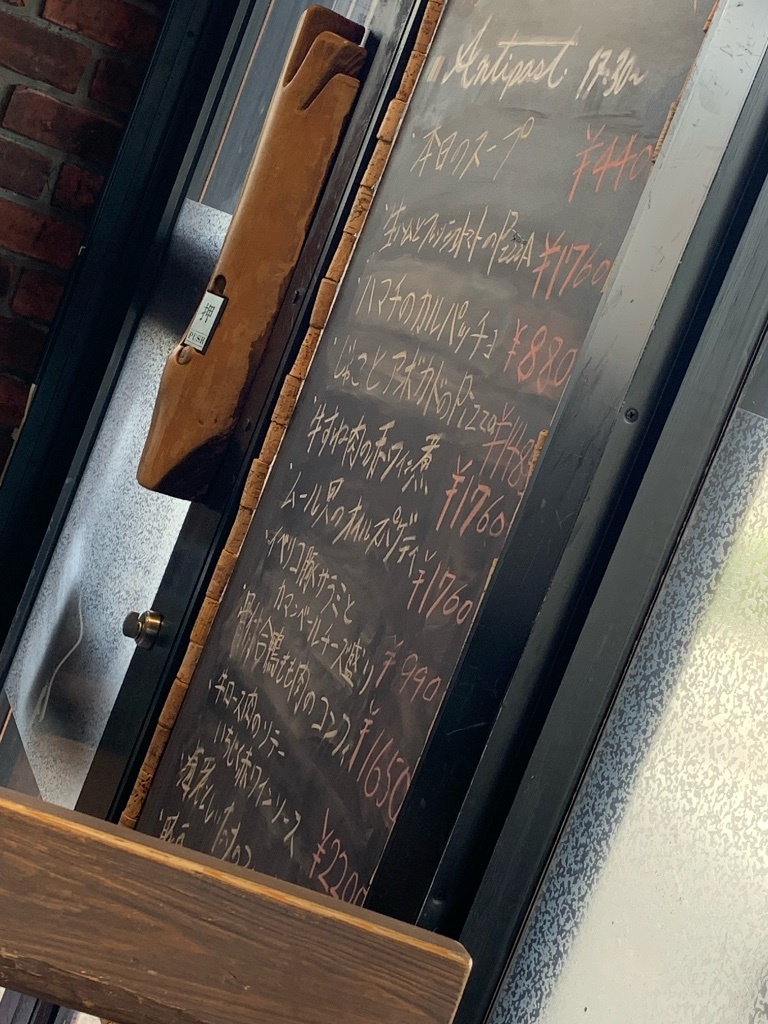 Antipast 17:30~
本日のスープ ¥440
生ハムとフレッシュトマトのPizzA ¥1760
ハマチのカルパッチョ ¥880
じゃことアボカドのPizzo ¥148
牛すね肉の赤ワイン煮 ¥1760
ムール貝の ¥1760
イベリコ豚サラミと
カマンベールチーズ盛り ¥990
骨付合鴨もも肉のコンフィ ¥1650
牛ロース肉のソテー
いちじく赤ワインソース ¥2200
押
PUSH